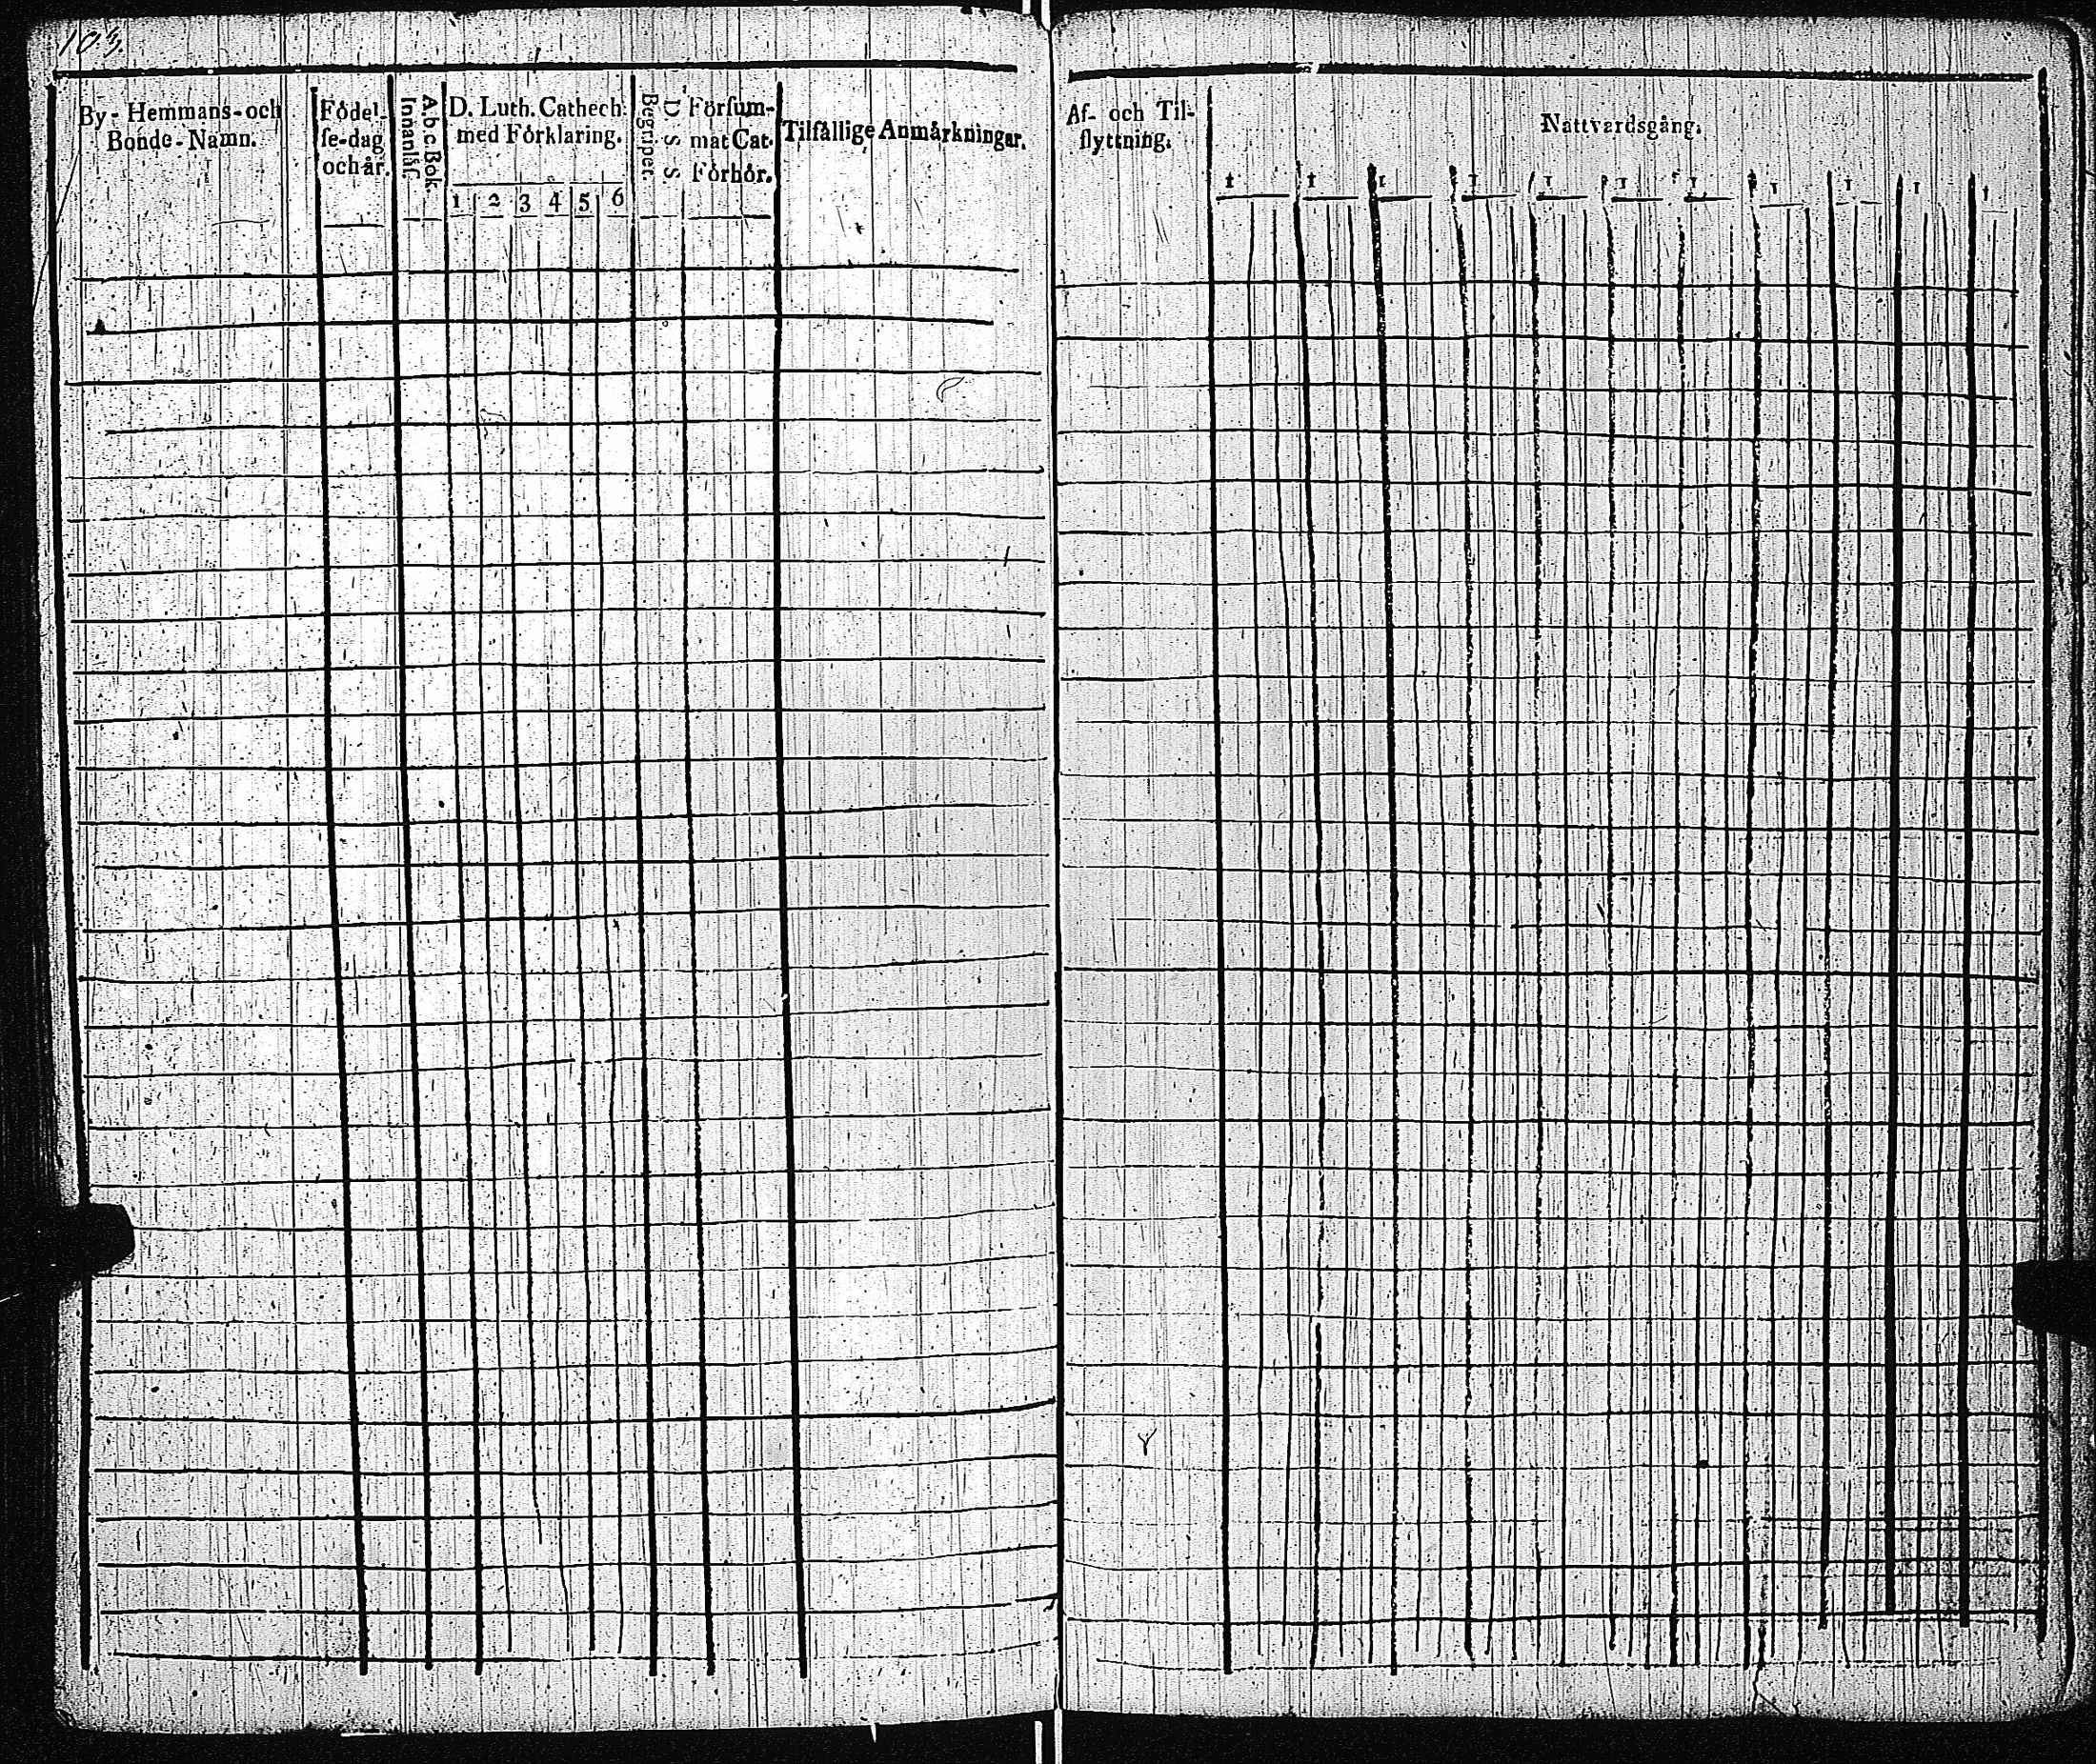 103.
By- Hemmans- och
Bonde-Namn.
Födel-
ſe-dag
och år.
Innanläſ.
A.b.c.Bok.
D. Luth. Cathech:
med Förklaring.
1 2 3 4 5 6
Begriper.
D S S
Förſum-
mat Cat.
Förhör.
Tilfällige Anmärkningar.
Af- och Til-
flyttning.
Nattvardsgång.
1 1 1 1 1 1 1 1 1 1 1